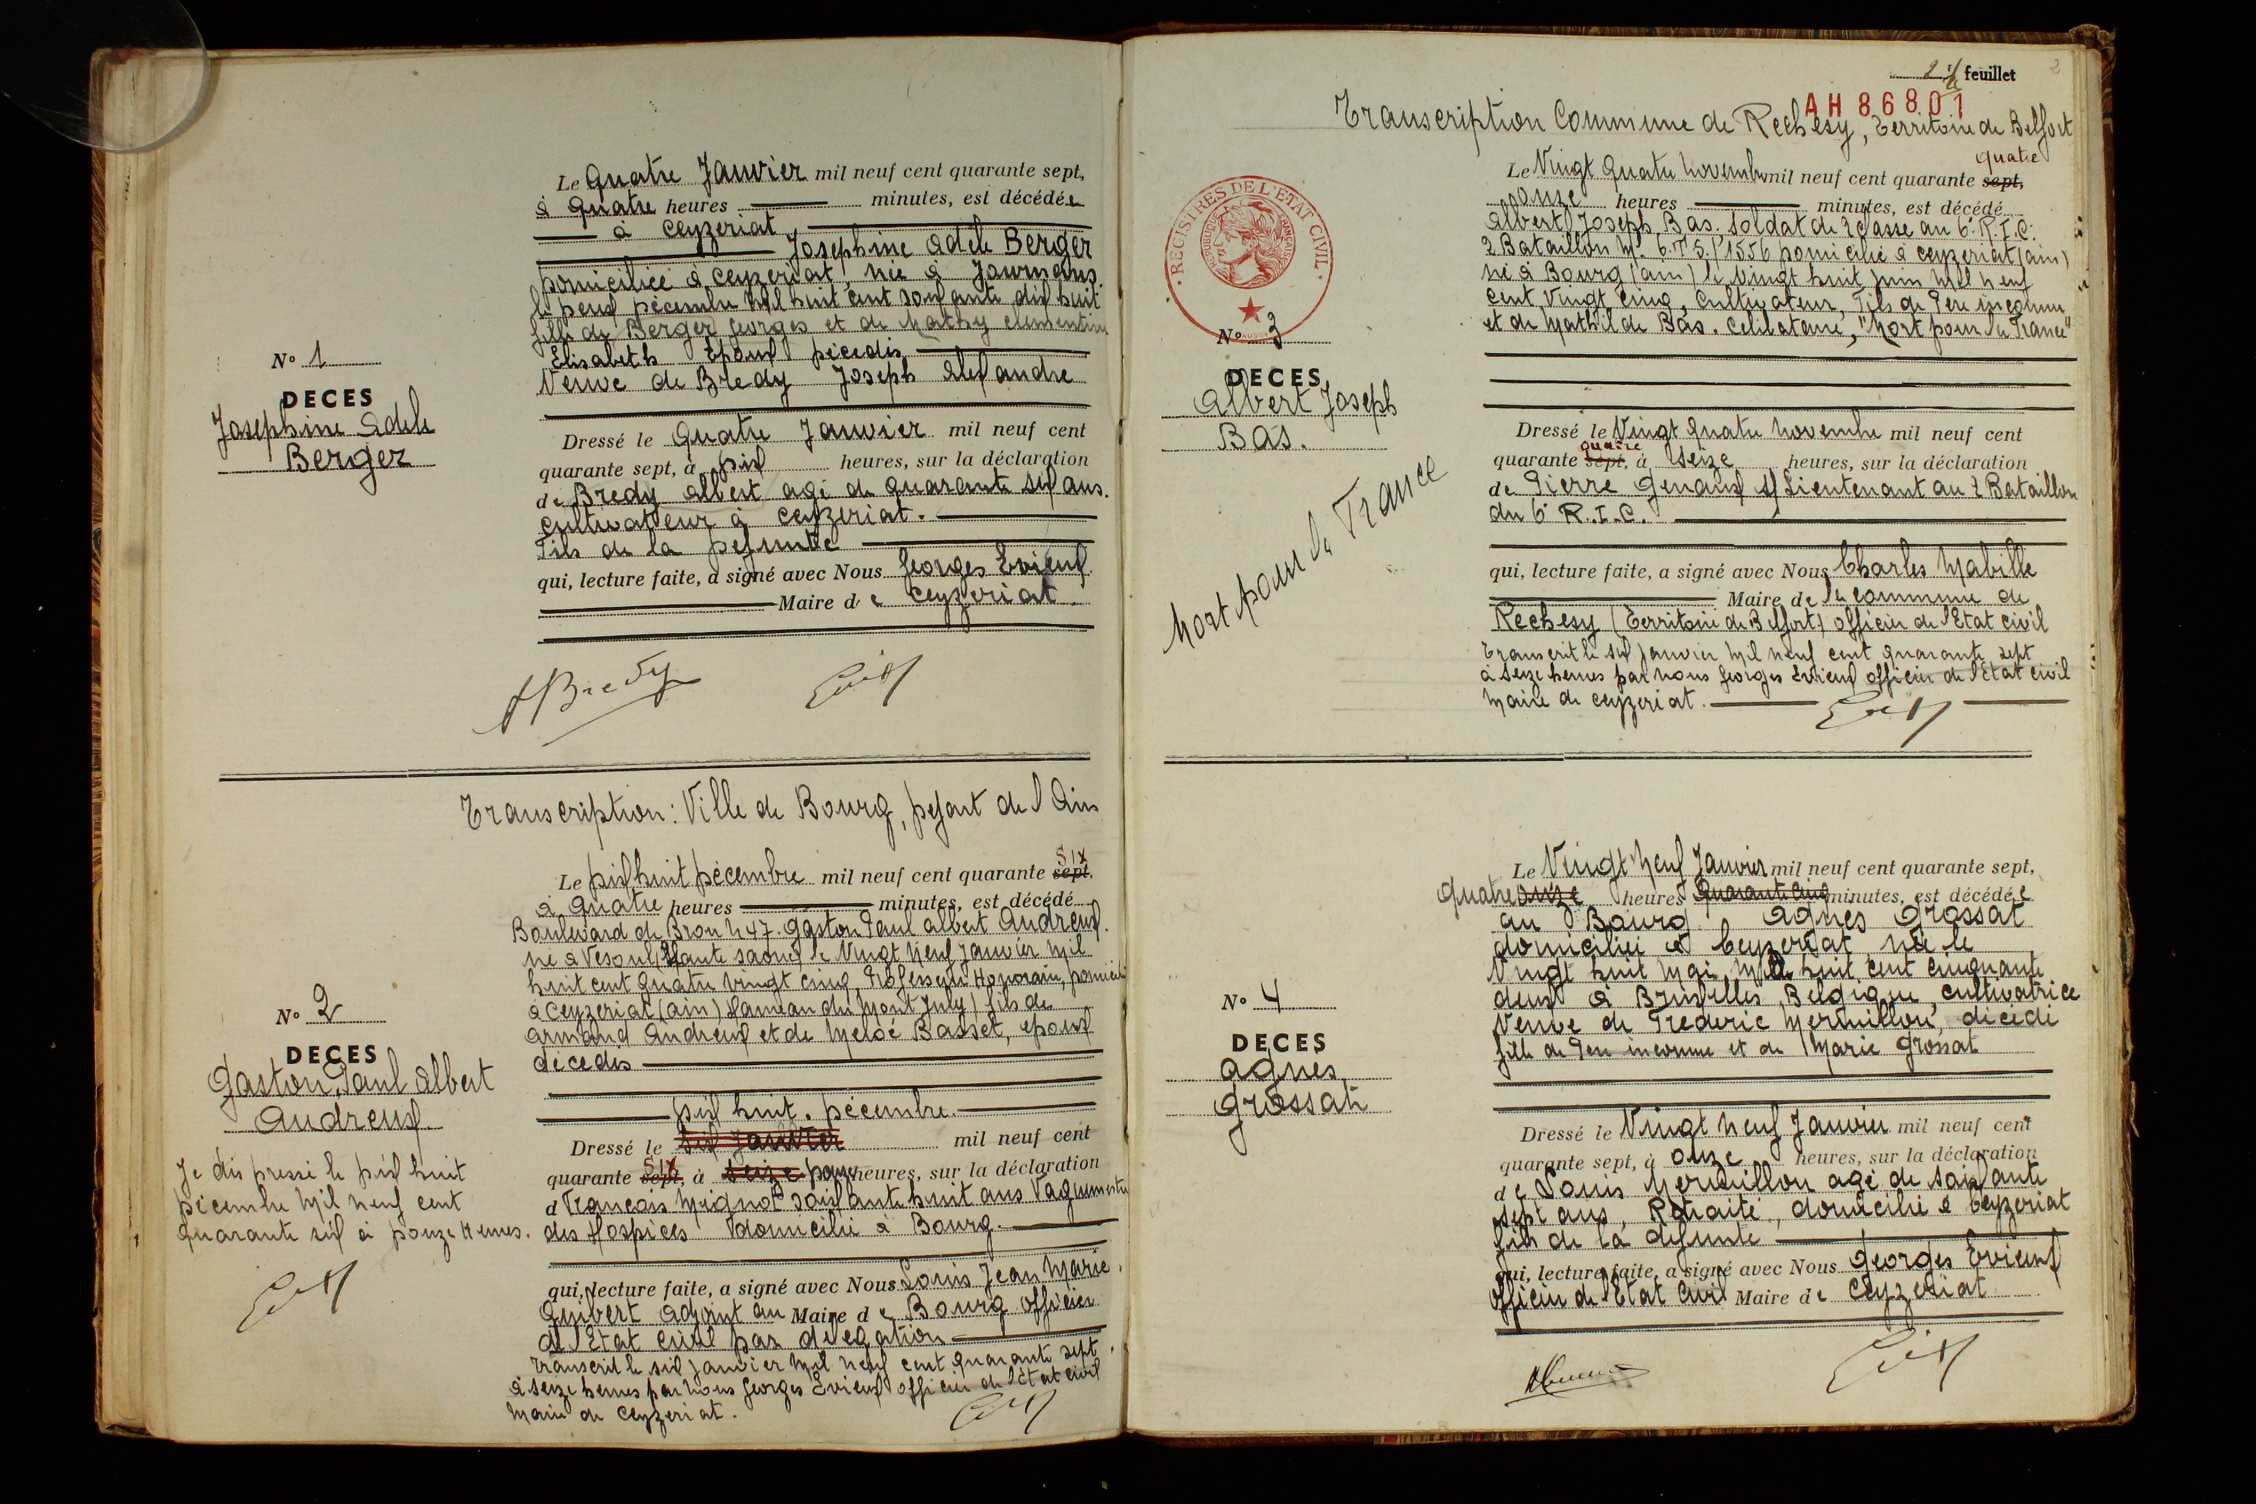 Le Quatre Janvier mil neuf cent quarante sept,
à Quatre heures minutes, est décédée
à Ceyzeriat
Josephine Adèle Berger
Domiciliée à Ceyzeriat, née à Journans
le Deux Décembre Mil huit cent soixante dix huit
fille de Berger Georges et de Mathy Clementine
Elisabeth Epoux Décédés
Veuve de Bredy Joseph Alexandre
N° 1
DECES
Josephine Adele
Berger
Dressé le Quatre Janvier mil neuf cent
quarante sept, à Dix heures, sur la déclaration
de Bredy Albert agé de quarante six ans.
Cultivateur à Ceyzeriat.
Fils de la Defunte
qui, lecture faite, a signé avec Nous Georges Evieux
Maire de Ceyzeriat
ABredy
Transcription: Ville de Bourg, Depart de l'Ain
Le Dix huit Décembre mil neuf cent quarante sept, six
à Quatre heures minutes, est décédé
Boulevard de Brou N 47. Gaston Paul Albert Andreux.
né à Vesoul (Haute Saône) le Vingt Neuf Janvier Mil
huit cent Quatre vingt cinq, Professeur Honoraire, Domicilié
à Ceyzeriat (Ain) Hameau du Mont July) fils de
Armand Andreux et de Meloé Basset, epoux
décédés
N° 2
DECES
Gaston Paul Albert
Andreux
Dix huit. Décembre.
Dressé le six Janvier mil neuf cent
quarante sept, six à seize Douze heures, sur la déclaration
d François Mignot soixante huit ans Vaguemestre
des Hospices domicilié à Bourg.
Je dis Dressé le Dix huit
Décembre Mil Neuf cent
Quarante six à Douze Heures.
qui, lecture faite, a signé avec Nous Louis Jean Marie
Guibert Adjoint au Maire de Bourg officier
de l'Etat civil par délégation
Transcrit le six Janvier Mil Neuf cent quarante sept
à seize heures par Nous Georges Evieux officier de l'Etat civil
Maire de Ceyzeriat.
2 feuillet
2
AH 86801
Transcription Commune de Rechesy, Territoire de Belfort
REGISTRES DE L'ETAT CIVIL
REPUBLIQUE FRANÇAISE
Le Vingt Quatre Novembre mil neuf cent quarante sept, quatre
onze heures minutes, est décédé
Albert Joseph Bas. soldat de 2 classe au 6e R.I.C.
2 Bataillon M. 6.T.5./1556 Domicilié à Ceyzeriat (Ain)
né à Bourg (Ain) le Vingt huit Juin Mil Neuf
cent Vingt Cinq, Cultivateur, Fils de Père inconnu
et de Mathilde Bas. Célibataire, "Mort pour la France"
N° 3
DECES
Albert Joseph
Bas.
Mort pour la France
Dressé le Vingt Quatre Novembre mil neuf cent
quarante sept, quatre à seize heures, sur la déclaration
de Pierre Genaux S/Lieutenant au 2 Bataillon
du 6e R.I.C.
qui, lecture faite, a signé avec Nous Charles Mabille
Maire de la commune de
Rechesy (Territoire de Belfort) officier de l'Etat civil
Transcrit le six Janvier Mil Neuf cent quarante sept
à seize heures par Nous Georges Evieux officier de l'Etat civil
Maire de Ceyzeriat.
Le Vingt Neuf Janvier mil neuf cent quarante sept,
Quatre onze heures Quarante cinq minutes, est décédée
au Bourg Agnes Grossat
domiciliée à Ceyzeriat née le
Vingt huit Mai Mil huit cent cinquante
deux à Bruxelles, Belgique, cultivatrice
Veuve de Frederic Mermillon, décédé
fille de Père inconnu et de Marie Grossat
N° 4
DECES
Agnes
Grossat
Dressé le Vingt Neuf Janvier mil neuf cent
quarante sept, à onze heures, sur la déclaration
de Louis Mermillon agé de soixante
sept ans, Retraité, domicilié à Ceyzeriat
fils de la defunte
qui, lecture faite, a signé avec Nous Georges Evieux
Officier de l'Etat Civil Maire de Ceyzeriat